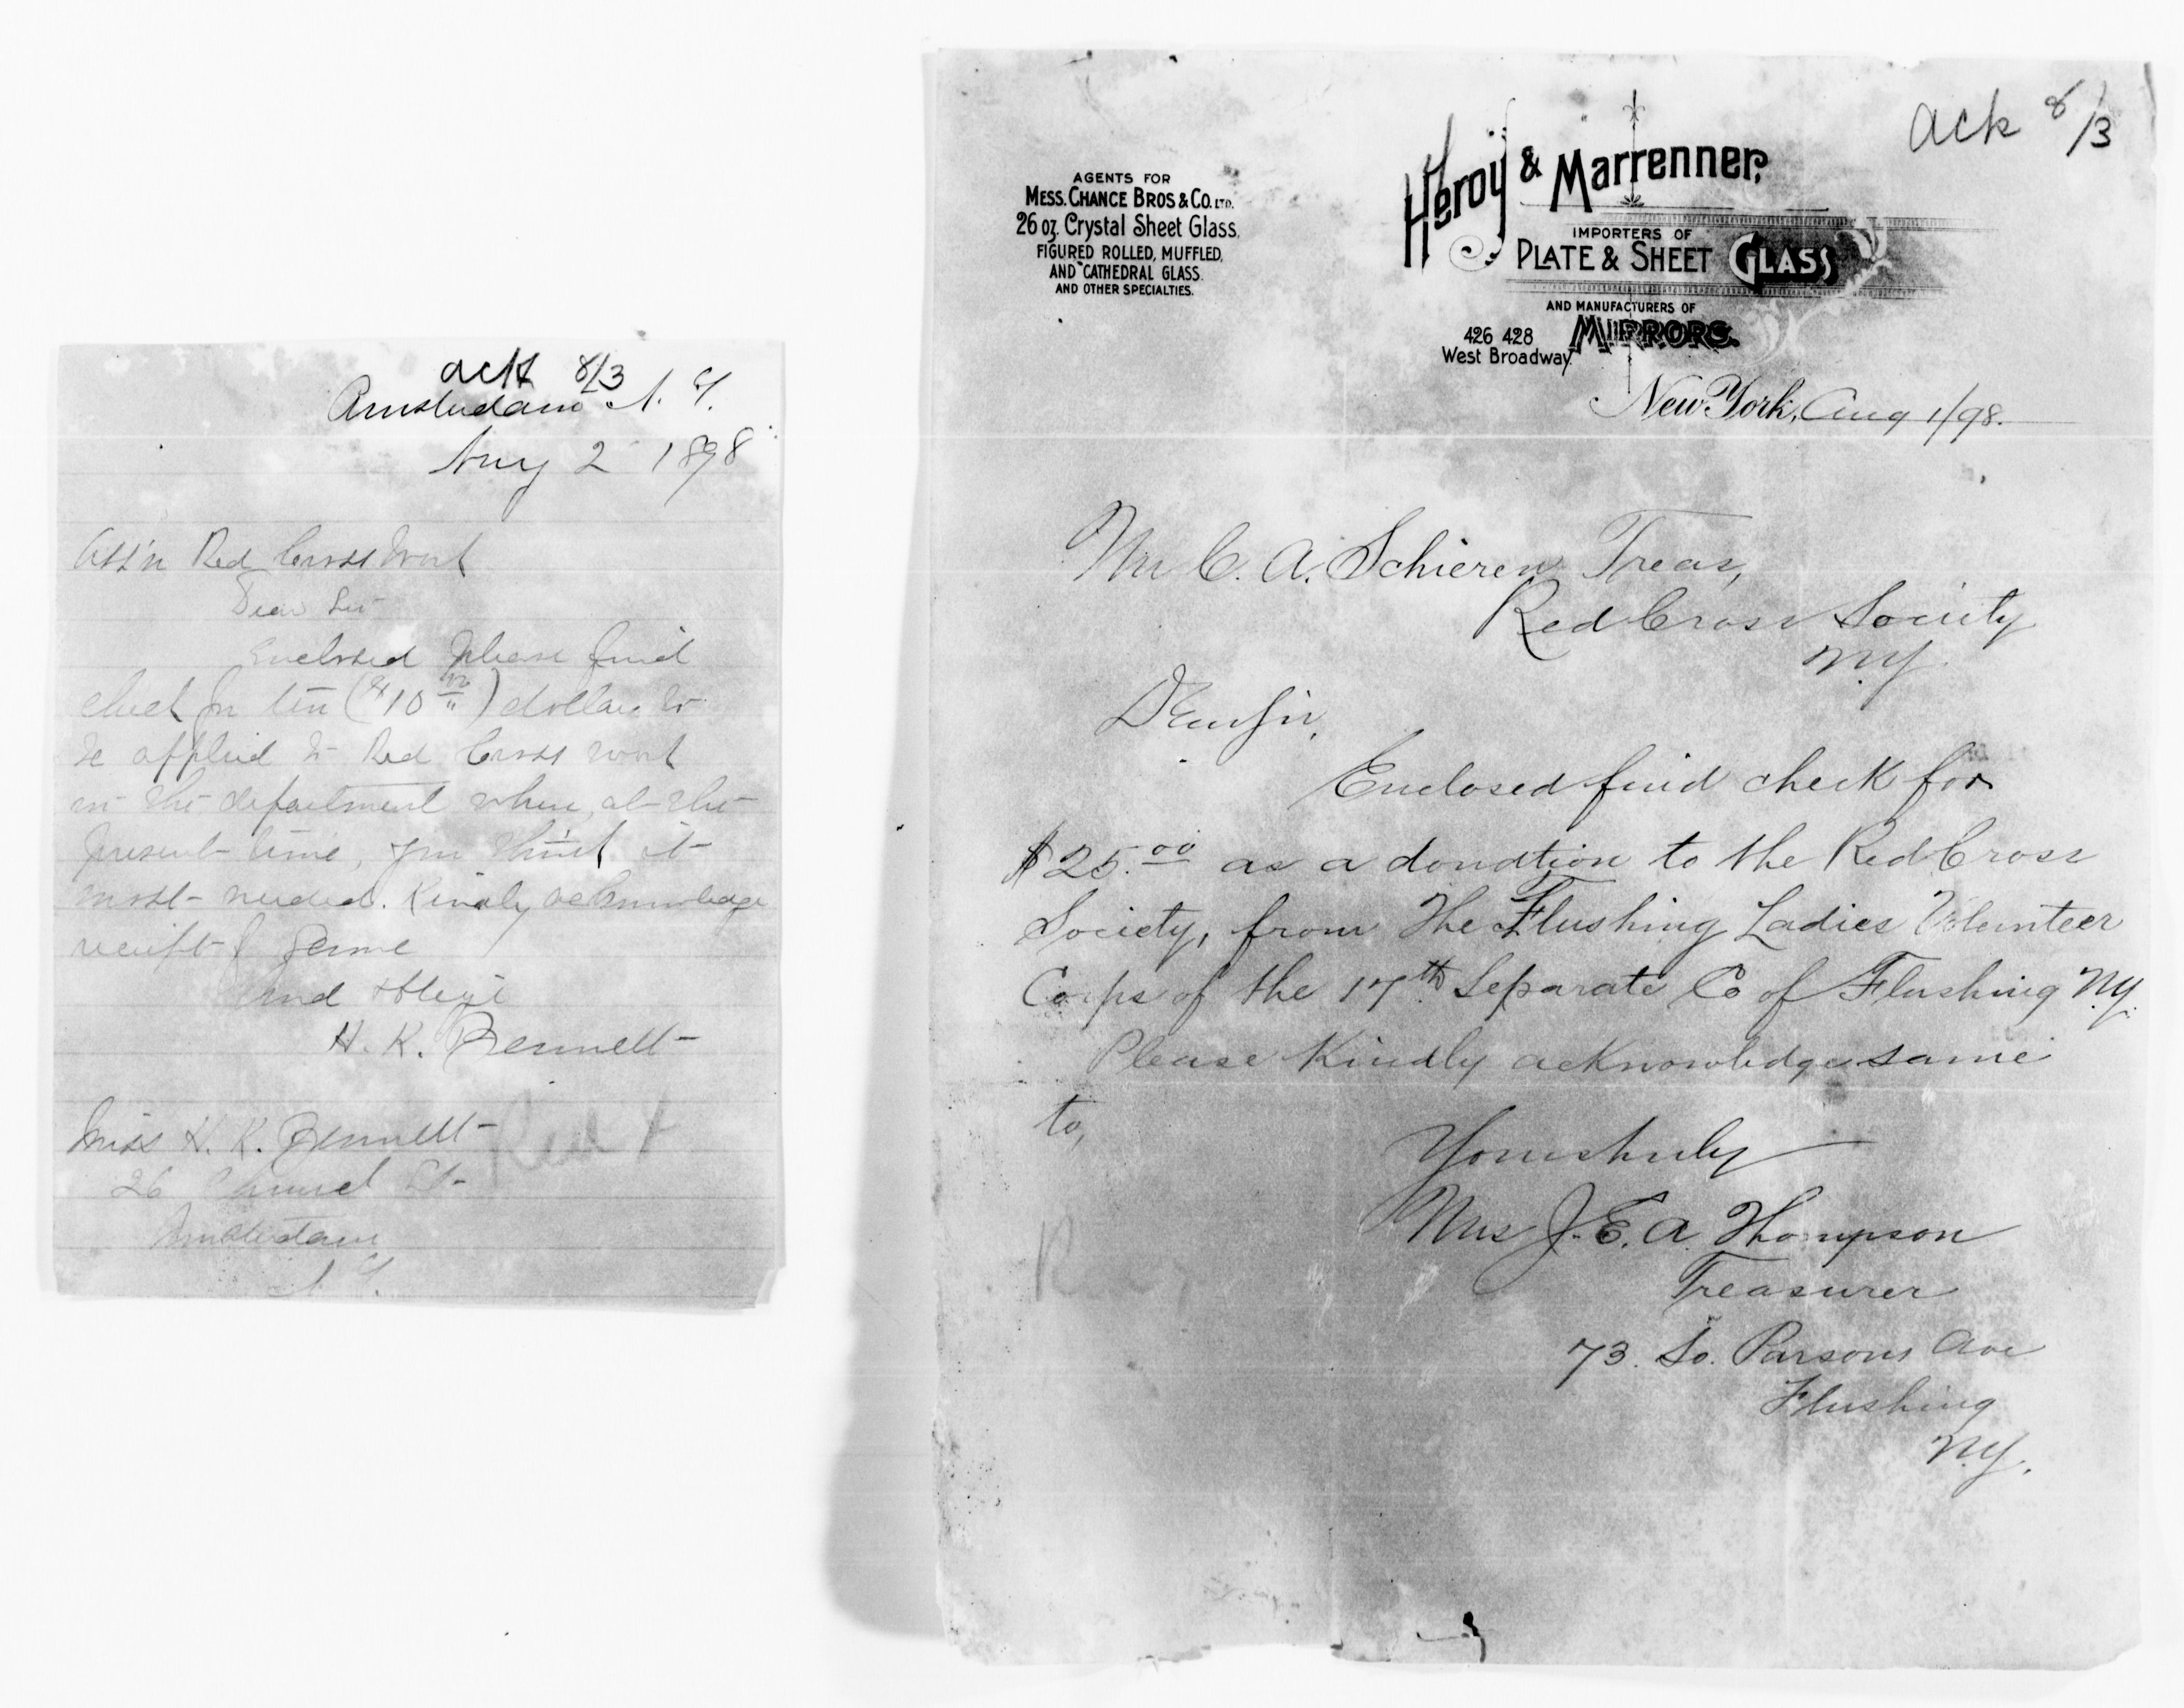 ack 8/3
Amsterdam N. Y.
Aug 2 1898
Ass'n Red Cross Work
Dear Sir
Enclosed please find
check for ten ($10 00) dollars to
be applied to Red Cross work
in the department where, at the
present time, you think it
most needed. Kindly acknowledge
receipt of same
And oblige
H. K. Bennett
Miss H. K. Bennett
26 St
Amsterdam
N. Y.
ack 8/3
AGENTS FOR
MESS. CHANCE BROS & CO. LTD.
26 oz. Crystal Sheet Glass,
FIGURED ROLLED, MUFFLED,
AND CATHEDRAL GLASS.
AND OTHER SPECIALTIES.
Heroy & Marrenner,
IMPORTERS OF
PLATE & SHEET GLASS
AND MANUFACTURERS OF
MIRRORS.
426 428
West Broadway.
New York, Aug 1/98.
Mr C. A. Schieren Treas,
Red Cross Society
N.Y.
Dear Sir,
Enclosed find check for
$25.00 as a donation to the Red Cross
Society, from The Flushing Ladies Volunteer
Corps of the 17th Separate Co of Flushing N.Y.
Please Kindly acknowledge same
to,
Yours truly
Mrs J. E. A. Thompson
Treasurer
73. So. Parsons Ave
Flushing
N.Y.